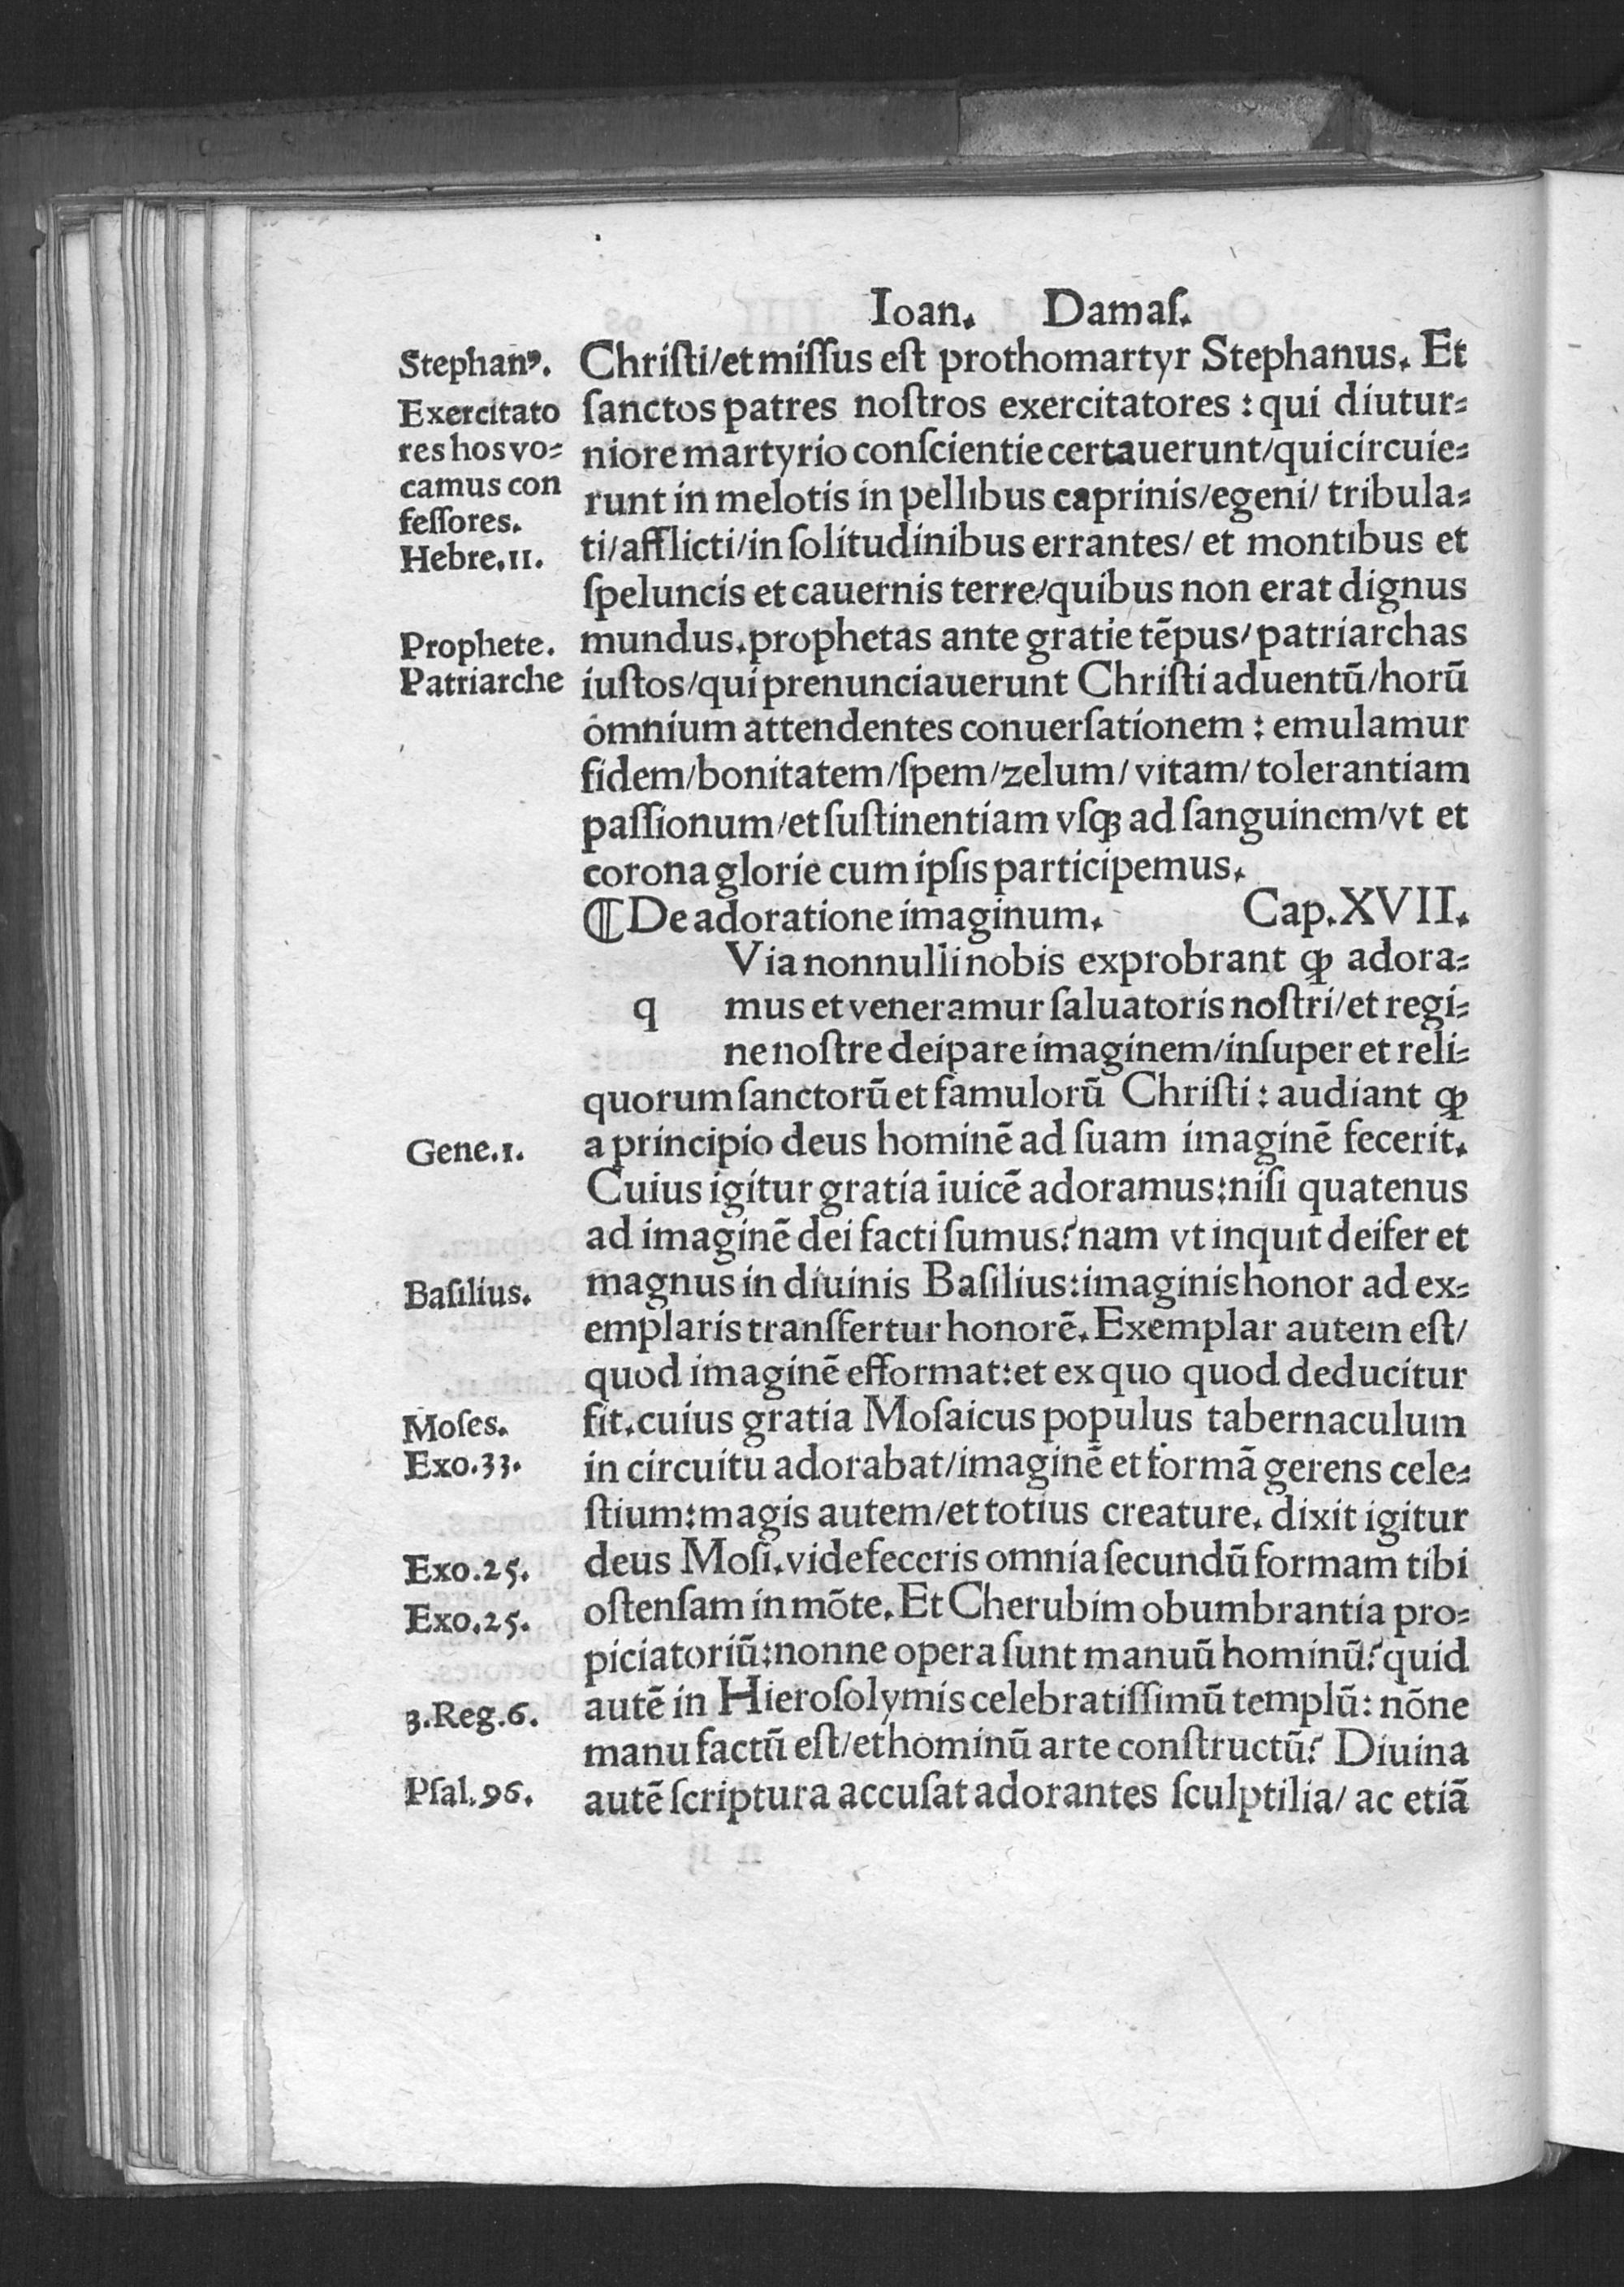 Ioan. Damaſ.
Stephanꝰ.
Exercitato
res hos vo⸗
camus con
feſſores.
Hebre.11.
Prophete.
Patriarche
Gene.1.
Baſilius.
Moſes.
Exo.33.
Exo.25.
Exo.25.
3.Reg.6.
Pſal.96.
Chriſti/et miſſus eſt prothomartyr Stephanus. Et
ſanctos patres noſtros exercitatores : qui diutur⸗
niore martyrio conſcientie certauerunt/qui circuie⸗
runt in melotis in pellibus caprinis/egeni/ tribula⸗
ti/afflicti/in ſolitudinibus errantes/ et montibus et
ſpeluncis et cauernis terre/quibus non erat dignus
mundus.prophetas ante gratie tēpus/patriarchas
iuſtos/qui prenunciauerunt Chriſti aduentū/horū
omnium attendentes conuerſationem : emulamur
fidem/bonitatem/ſpem/zelum/vitam/tolerantiam
paſſionum/et ſuſtinentiam vſqꝫ ad ſanguinem/vt et
corona glorie cum ipſis participemus.
⁋De adoratione imaginum. Cap.XVII.
q Via nonnulli nobis exprobrant ꝙ adora⸗
mus et veneramur ſaluatoris noſtri/et regi⸗
ne noſtre deipare imaginem/inſuper et reli⸗
quorum ſanctorū et famulorū Chriſti : audiant ꝙ
a principio deus hominē ad ſuam imaginē fecerit.
Cuius igitur gratia īuicē adoramus:niſi quatenus
ad imaginē dei facti ſumus? nam vt inquit deifer et
magnus in diuinis Baſilius:imaginis honor ad ex⸗
emplaris tranſfertur honorē.Exemplar autem eſt/
quod imaginē efformat:et ex quo quod deducitur
fit.cuius gratia Moſaicus populus tabernaculum
in circuitu adorabat/imaginē et formā gerens cele⸗
ſtium:magis autem/et totius creature. dixit igitur
deus Moſi.vide feceris omnia ſecundū formam tibi
oſtenſam in mōte.Et Cherubim obumbrantia pro⸗
piciatoriū:nonne opera ſunt manuū hominū? quid
autē in Hieroſolymis celebratiſſimū templū: nōne
manu factū eſt/et hominū arte conſtructū? Diuina
autē ſcriptura accuſat adorantes ſculptilia/ ac etiā